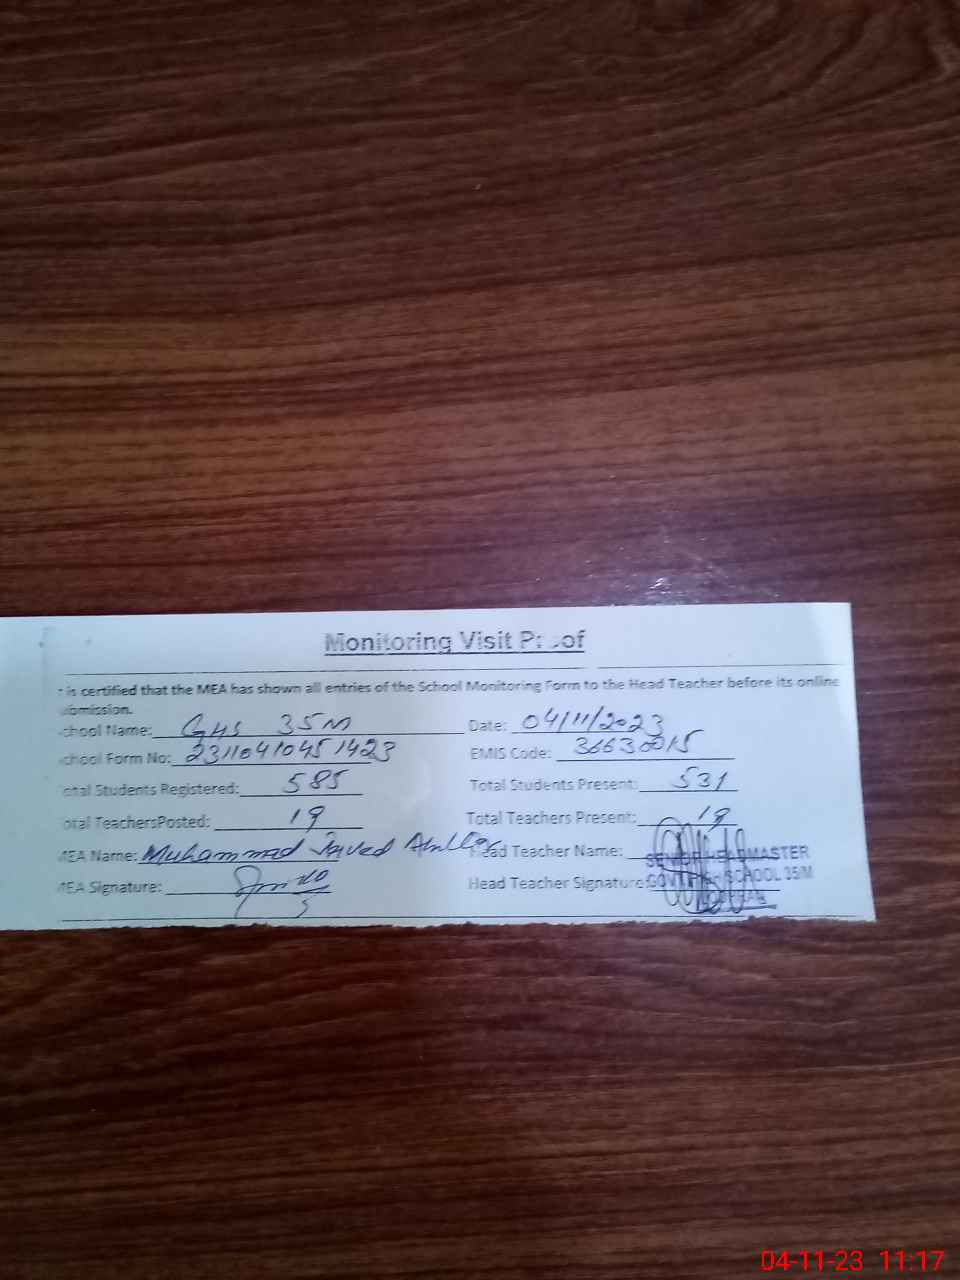 Monitoring Visit Proof
is certified that the MEA has shown all entries of the School Monitoring Form to the Head Teacher before its online
ubmission.
chool Name: GHS 35M Date: 04/11/2023
chool Form No: 23110410451423 EMIS Code: 36630015
otal Students Registered: 585 Total Students Present: 531
otal TeachersPosted: 19 Total Teachers Present: 19
MEA Name: Muhammad Javed Head Teacher Name:
SENIOR HEADMASTER
MEA Signature: Head Teacher Signature:
GOVT. HIGH SCHOOL 35/M
04-11-23 11:17